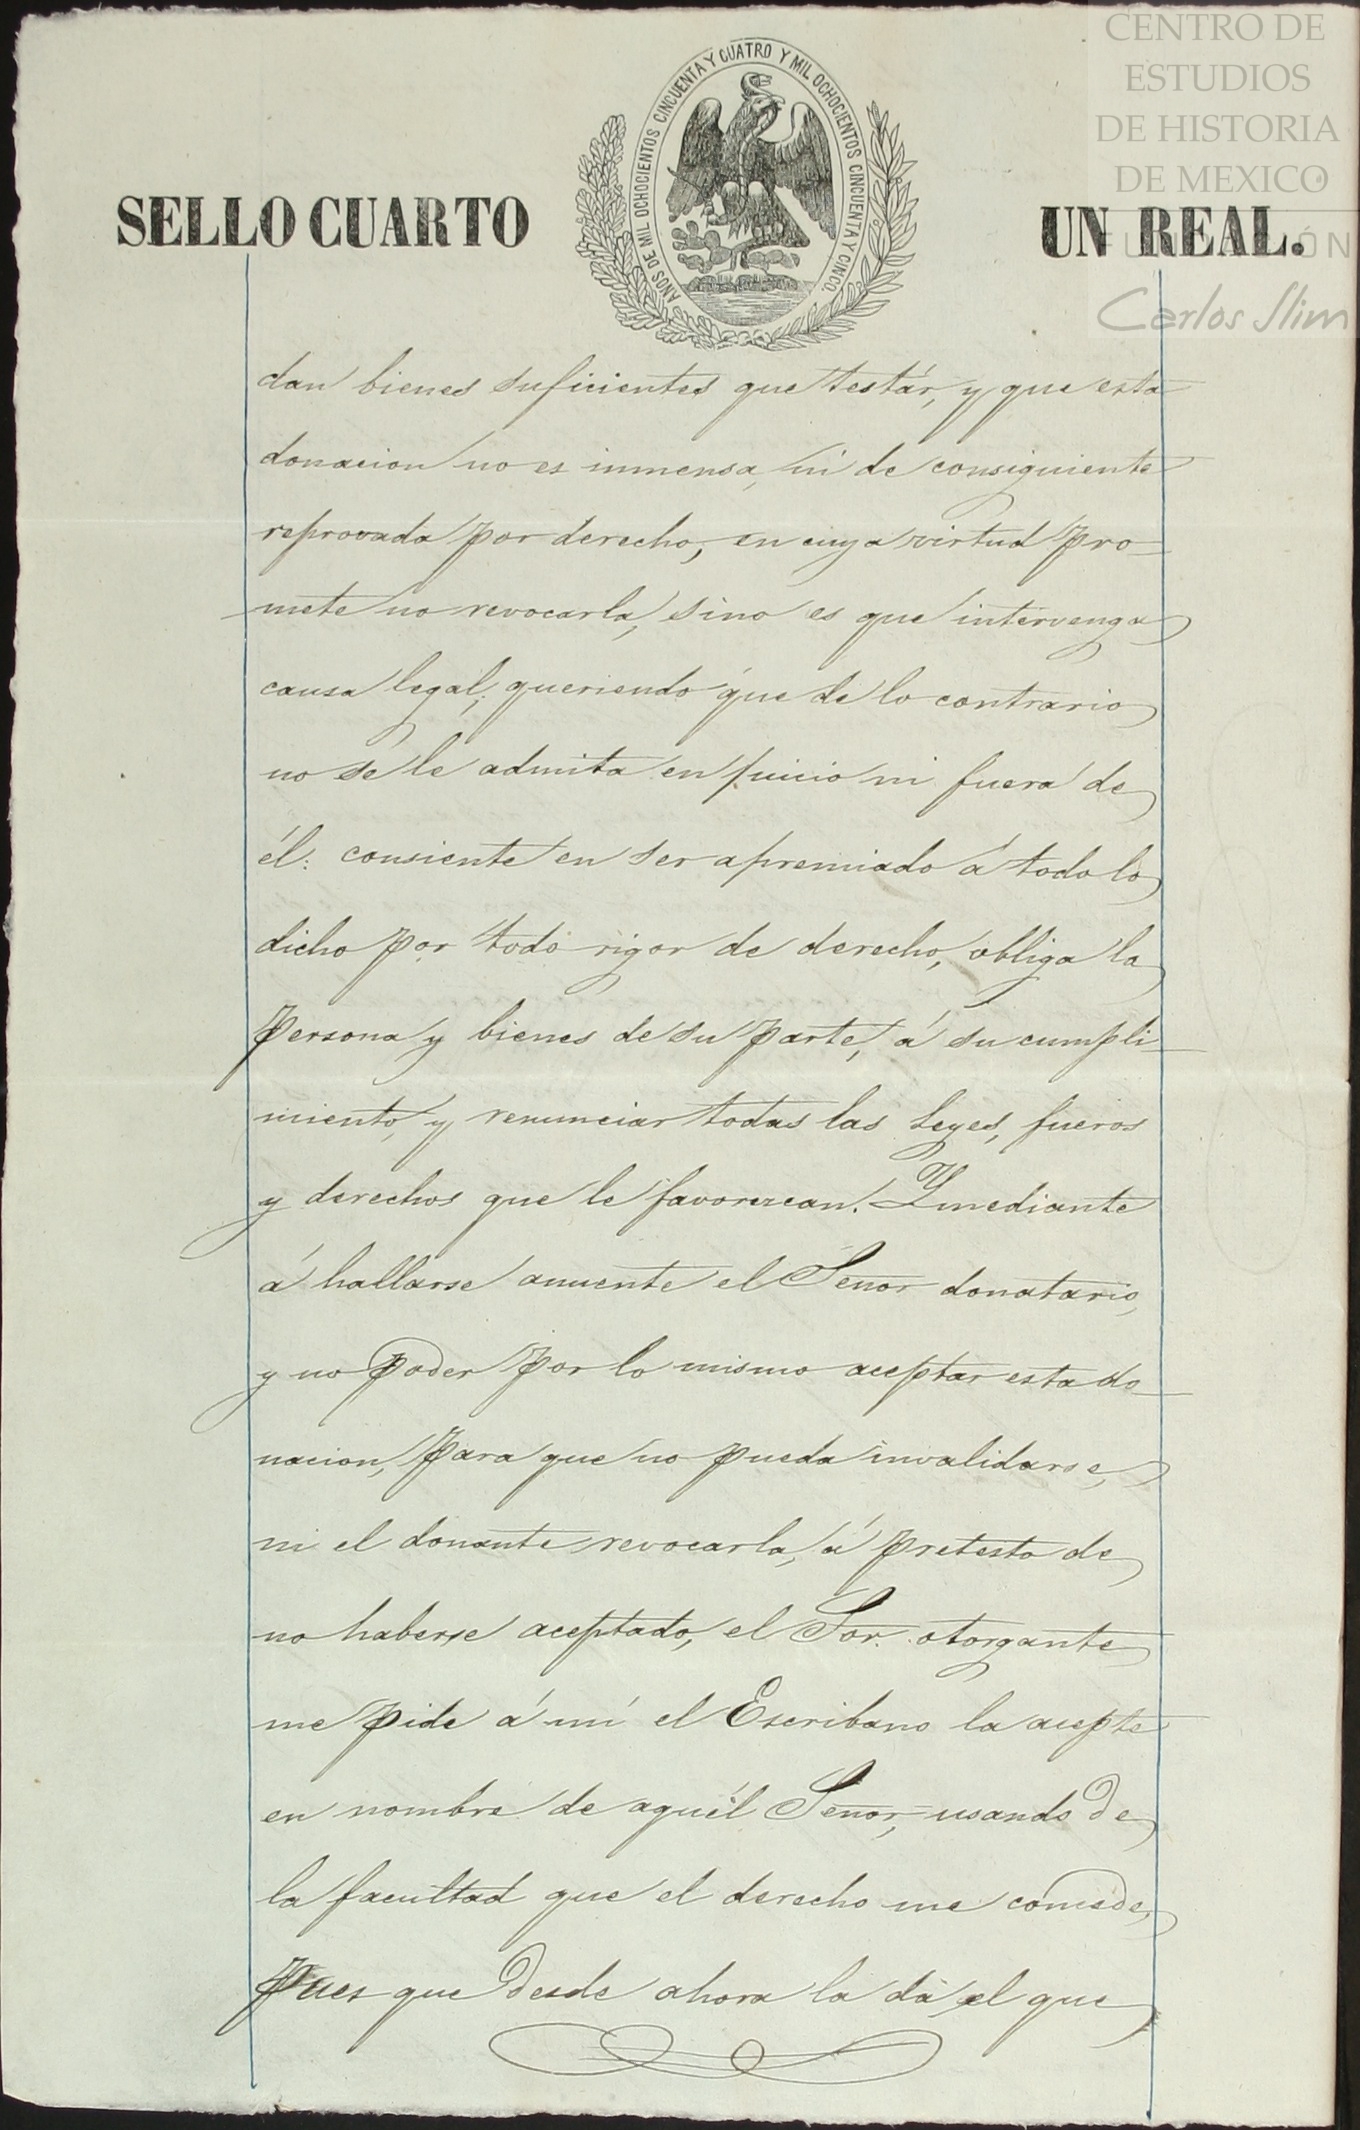 CENTRO DE
ESTUDIOS
DE HISTORIA
DE MEXICO
FUNDACIÓN
Carlos Slim
AÑOS DE MIL OCHOCIENTOS CINCUENTA Y CUATRO Y MIL OCHOCIENTOS CINCUENTA Y CINCO.
SELLO CUARTO UN REAL.
dan bienes suficientes que testár, y que esta
donacion no es inmensa, ni de consiguiente
reprovada por derecho, en cuya virtud pro-
mete no revocarla, sino es que intervenga
causa legal; queriendo que de lo contrario
no se le admita en juicio ni fuera de
él: consiente en ser apremiado á todo lo
dicho por todo rigor de derecho, obliga la
persona y bienes de su parte, á su cumpli-
miento, y renunciar todas las Leyes, fueros
y derechos que le favorezcan. Y mediante
á hallarse anuente el Señor donatario,
y no poder por lo mismo aceptar esta do-
nacion, para que no pueda invalidarse,
ni el donante revocarla, á pretesto de
no haberse aceptado, el Sor. otorgante
me pide á mí el Escribano la acepte
en nombre de aquél Señor, usando de
la facultad que el derecho me consede,
pues que desde ahora la dá, el que